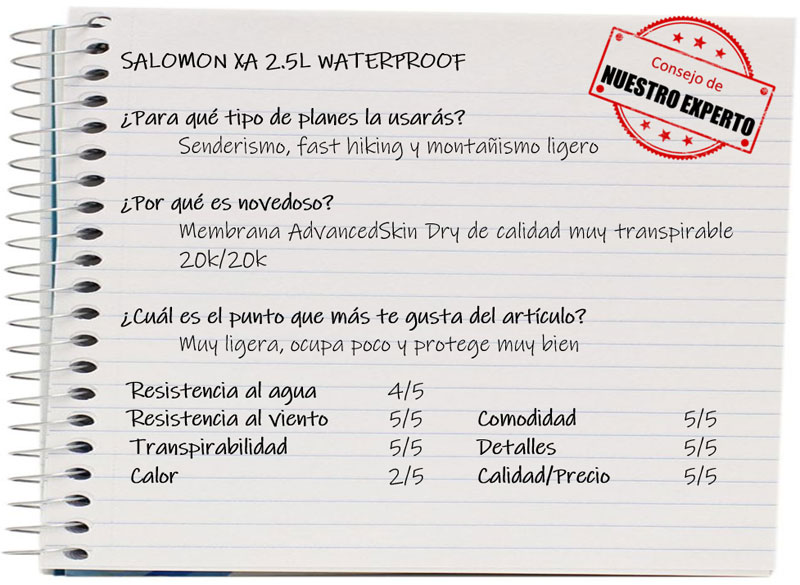 SALOMON XA 2.5L WATERPROOF
Consejo de
NUESTRO EXPERTO
¿Para qué tipo de planes la usarás?
Senderismo, fast hiking y montañismo ligero
¿Por qué es novedoso?
Membrana AdvancedSkin Dry de calidad muy transpirable
20k/20k
¿Cuál es el punto que más te gusta del artículo?
Muy ligera, ocupa poco y protege muy bien
Resistencia al agua 4/5
Resistencia al viento 5/5 Comodidad 5/5
Transpirabilidad 5/5 Detalles 5/5
Calor 2/5 Calidad/Precio 5/5